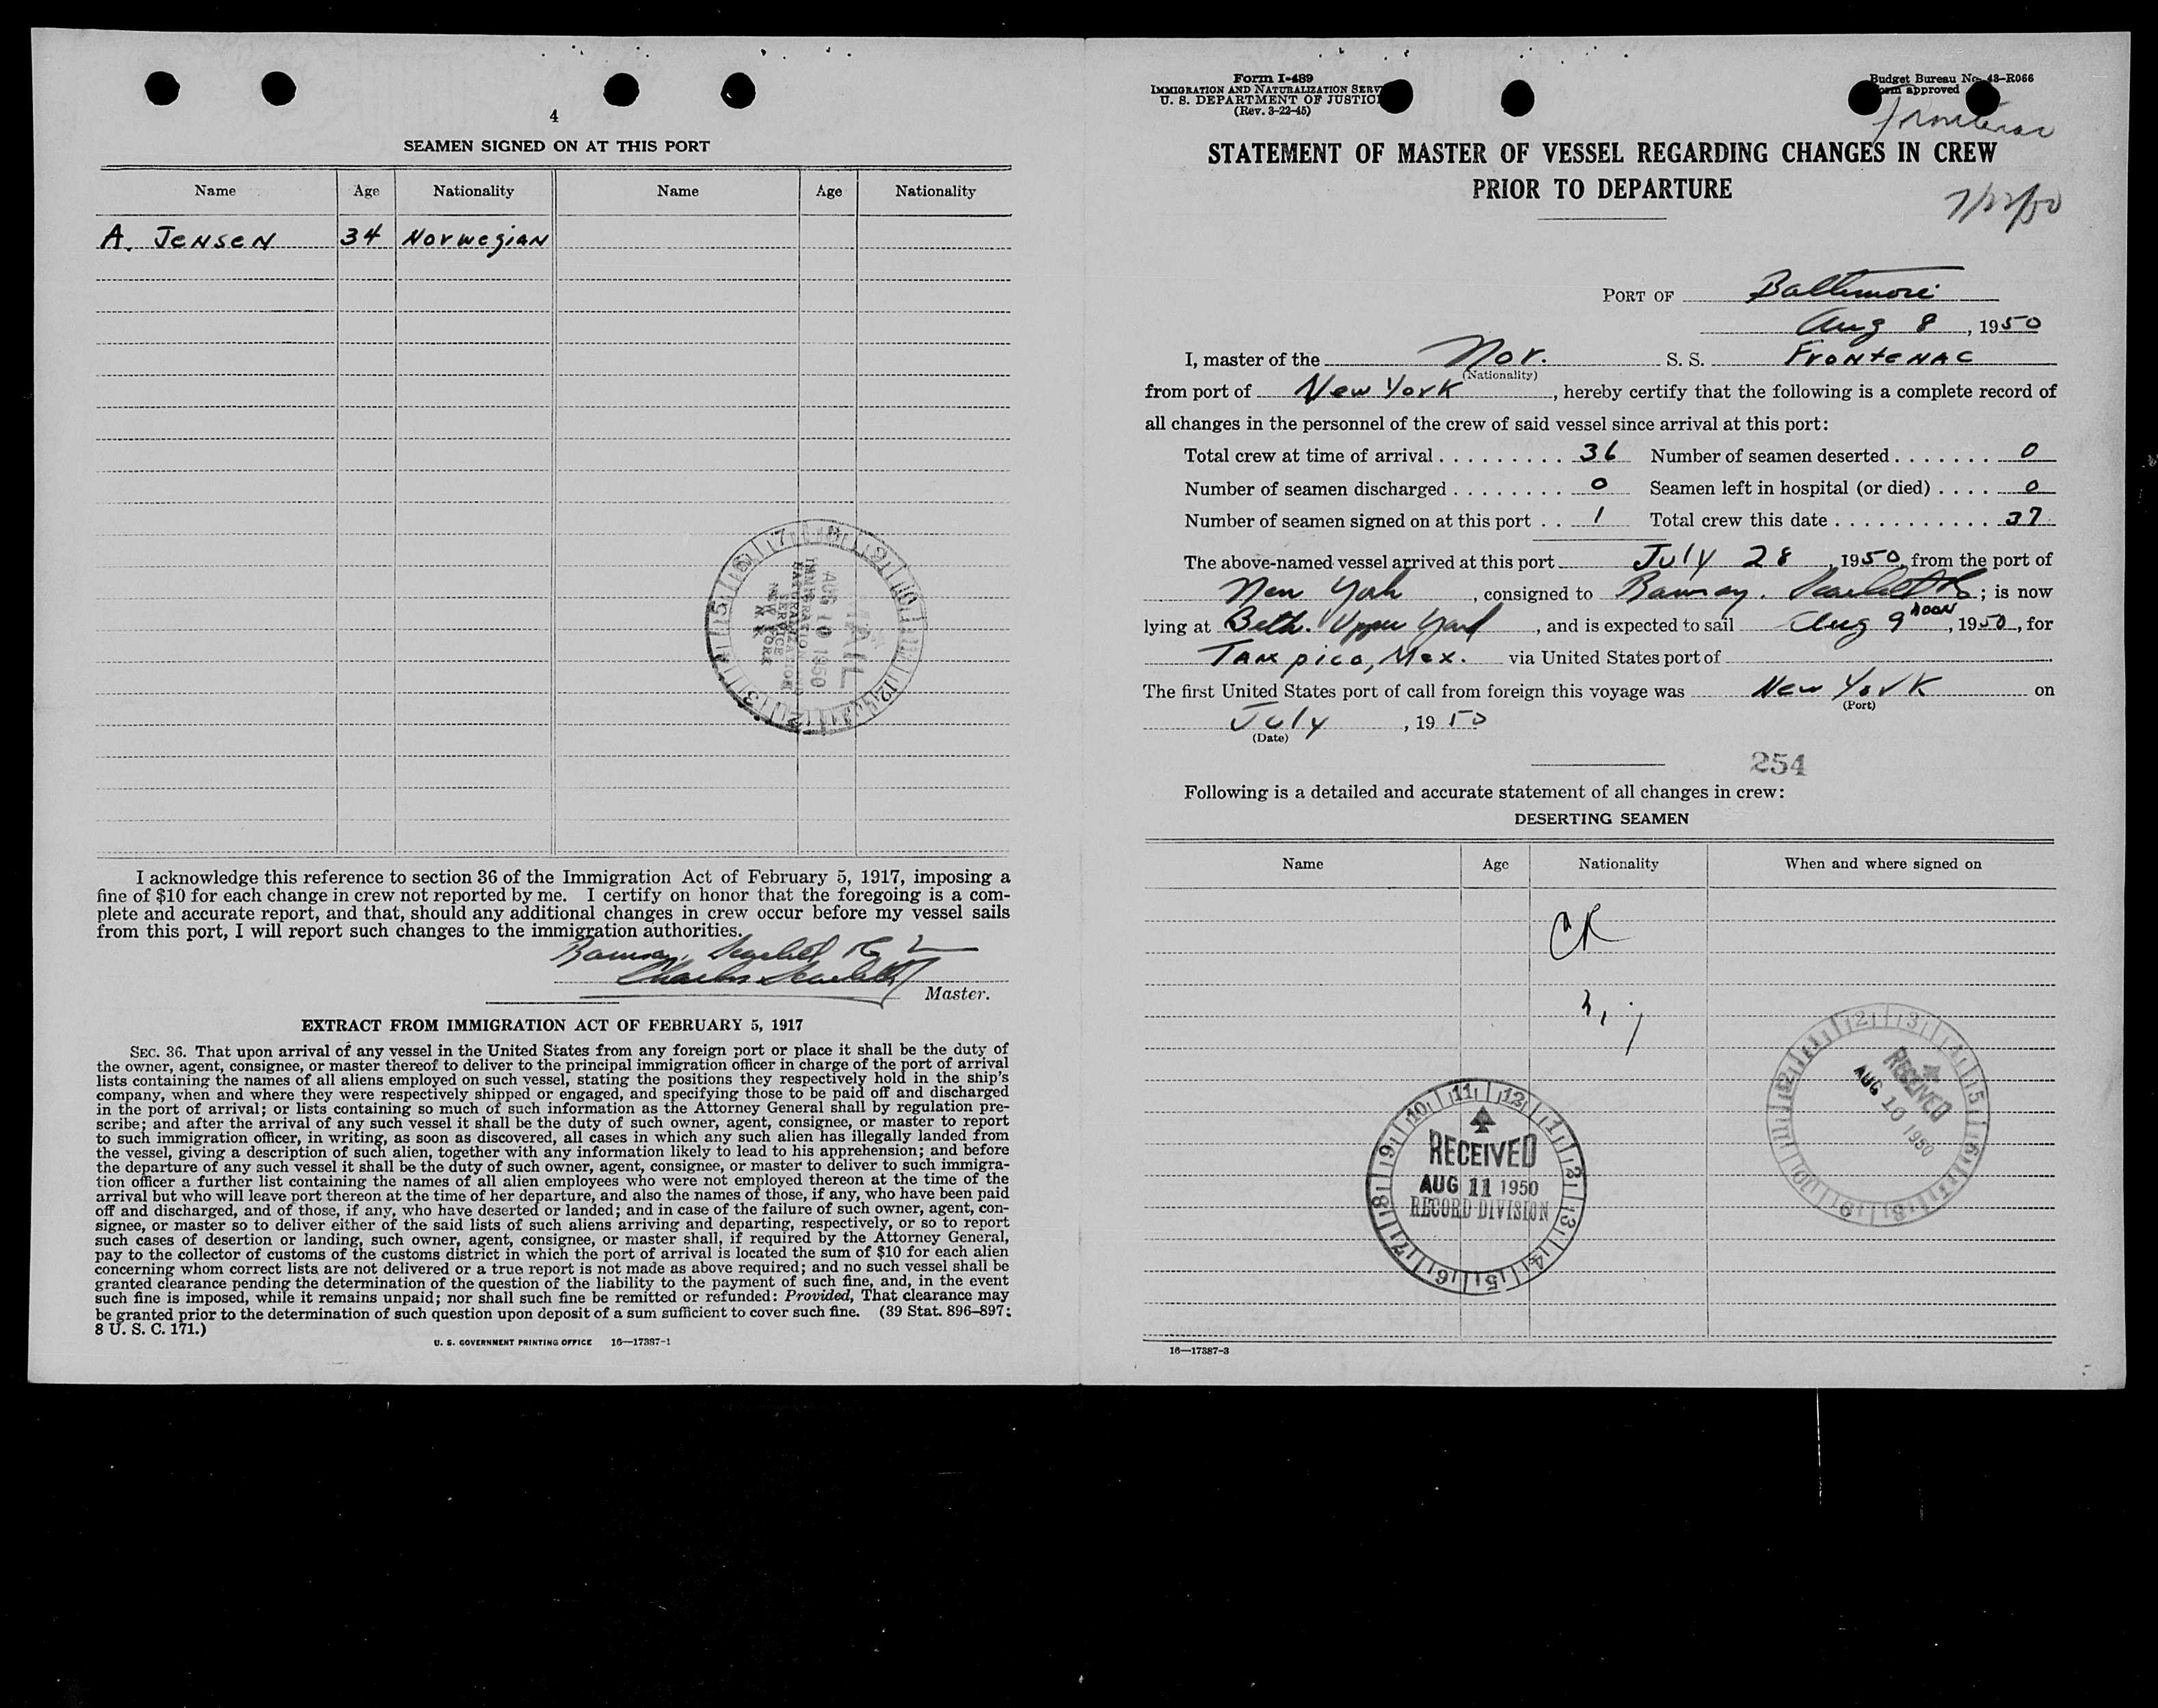 4
SEAMEN SIGNED ON AT THIS PORT
Name Age Nationality Name Age Nationality
A. JENSEN 34 Norwegian
AUG 10 1950
MAIL
IMMIGRATION AND
NATURALIZATION
SERVICE
NEW YORK
N.Y.
I acknowledge this reference to section 36 of the Immigration Act of February 5, 1917, imposing a
fine of $10 for each change in crew not reported by me. I certify on honor that the foregoing is a com-
plete and accurate report, and that, should any additional changes in crew occur before my vessel sails
from this port, I will report such changes to the immigration authorities.
Ramsay, Scarlett
Charles Scarlett
Master.
EXTRACT FROM IMMIGRATION ACT OF FEBRUARY 5, 1917
SEC. 36. That upon arrival of any vessel in the United States from any foreign port or place it shall be the duty of
the owner, agent, consignee, or master thereof to deliver to the principal immigration officer in charge of the port of arrival
lists containing the names of all aliens employed on such vessel, stating the positions they respectively hold in the ship's
company, when and where they were respectively shipped or engaged, and specifying those to be paid off and discharged
in the port of arrival; or lists containing so much of such information as the Attorney General shall by regulation pre-
scribe; and after the arrival of any such vessel it shall be the duty of such owner, agent, consignee, or master to report
to such immigration officer, in writing, as soon as discovered, all cases in which any such alien has illegally landed from
the vessel, giving a description of such alien, together with any information likely to lead to his apprehension; and before
the departure of any such vessel it shall be the duty of such owner, agent, consignee, or master to deliver to such immigra-
tion officer a further list containing the names of all alien employees who were not employed thereon at the time of the
arrival but who will leave port thereon at the time of her departure, and also the names of those, if any, who have been paid
off and discharged, and of those, if any, who have deserted or landed; and in case of the failure of such owner, agent, con-
signee, or master so to deliver either of the said lists of such aliens arriving and departing, respectively, or so to report
such cases of desertion or landing, such owner, agent, consignee, or master shall, if required by the Attorney General,
pay to the collector of customs of the customs district in which the port of arrival is located the sum of $10 for each alien
concerning whom correct lists are not delivered or a true report is not made as above required; and no such vessel shall be
granted clearance pending the determination of the question of the liability to the payment of such fine, and, in the event
such fine is imposed, while it remains unpaid; nor shall such fine be remitted or refunded: Provided, That clearance may
be granted prior to the determination of such question upon deposit of a sum sufficient to cover such fine. (39 Stat. 896–897;
8 U. S. C. 171.)
U. S. GOVERNMENT PRINTING OFFICE 16—17387-1
Form I-489
IMMIGRATION AND NATURALIZATION SERV
U. S. DEPARTMENT OF JUSTIC
(Rev. 3-22-45)
Budget Bureau No. 43–R066
Form approved
Frontenac
STATEMENT OF MASTER OF VESSEL REGARDING CHANGES IN CREW
PRIOR TO DEPARTURE
7/22/50
PORT OF Baltimore
Aug 8, 1950
I, master of the Nor. S. S. FRONTENAC
(Nationality)
from port of New York, hereby certify that the following is a complete record of
all changes in the personnel of the crew of said vessel since arrival at this port:
Total crew at time of arrival . . . . . . . . . 36 Number of seamen deserted . . . . . . . 0
Number of seamen discharged . . . . . . . . 0 Seamen left in hospital (or died) . . . . 0
Number of seamen signed on at this port . . 1 Total crew this date . . . . . . . . . . . . 37
The above-named vessel arrived at this port July 28, 1950, from the port of
New York, consigned to Ramsay, Scarlett Co; is now
lying at Beth. Upper Yard, and is expected to sail Aug 9 NOON, 1950, for
Tampico, Mex. via United States port of
The first United States port of call from foreign this voyage was New York on
(Port)
July, 1950
(Date)
254
Following is a detailed and accurate statement of all changes in crew:
DESERTING SEAMEN
Name Age Nationality When and where signed on
CK
RECEIVED
AUG 10 1950
RECEIVED
AUG 11 1950
RECORD DIVISION
16—17387-3